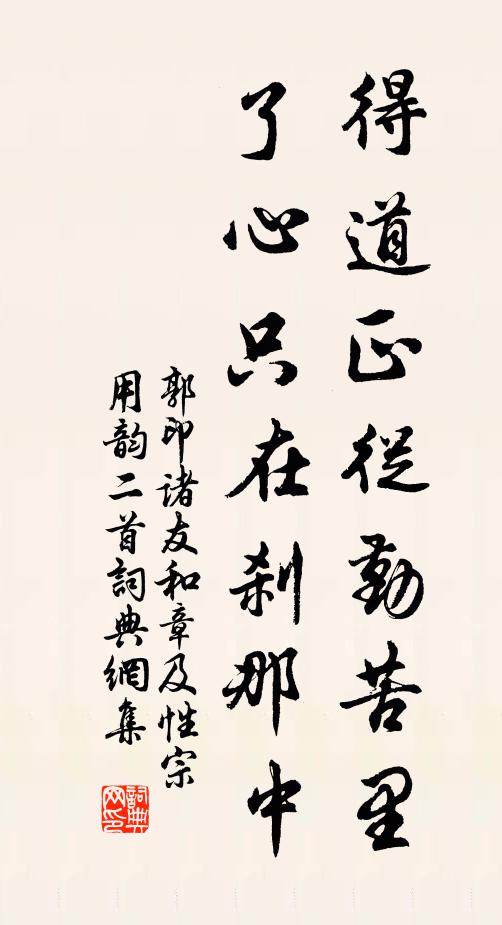 得道正從勤苦里
了心只在刹那中
郭印诸友和章及性宗
用韵二首詞典網集
詞典网印